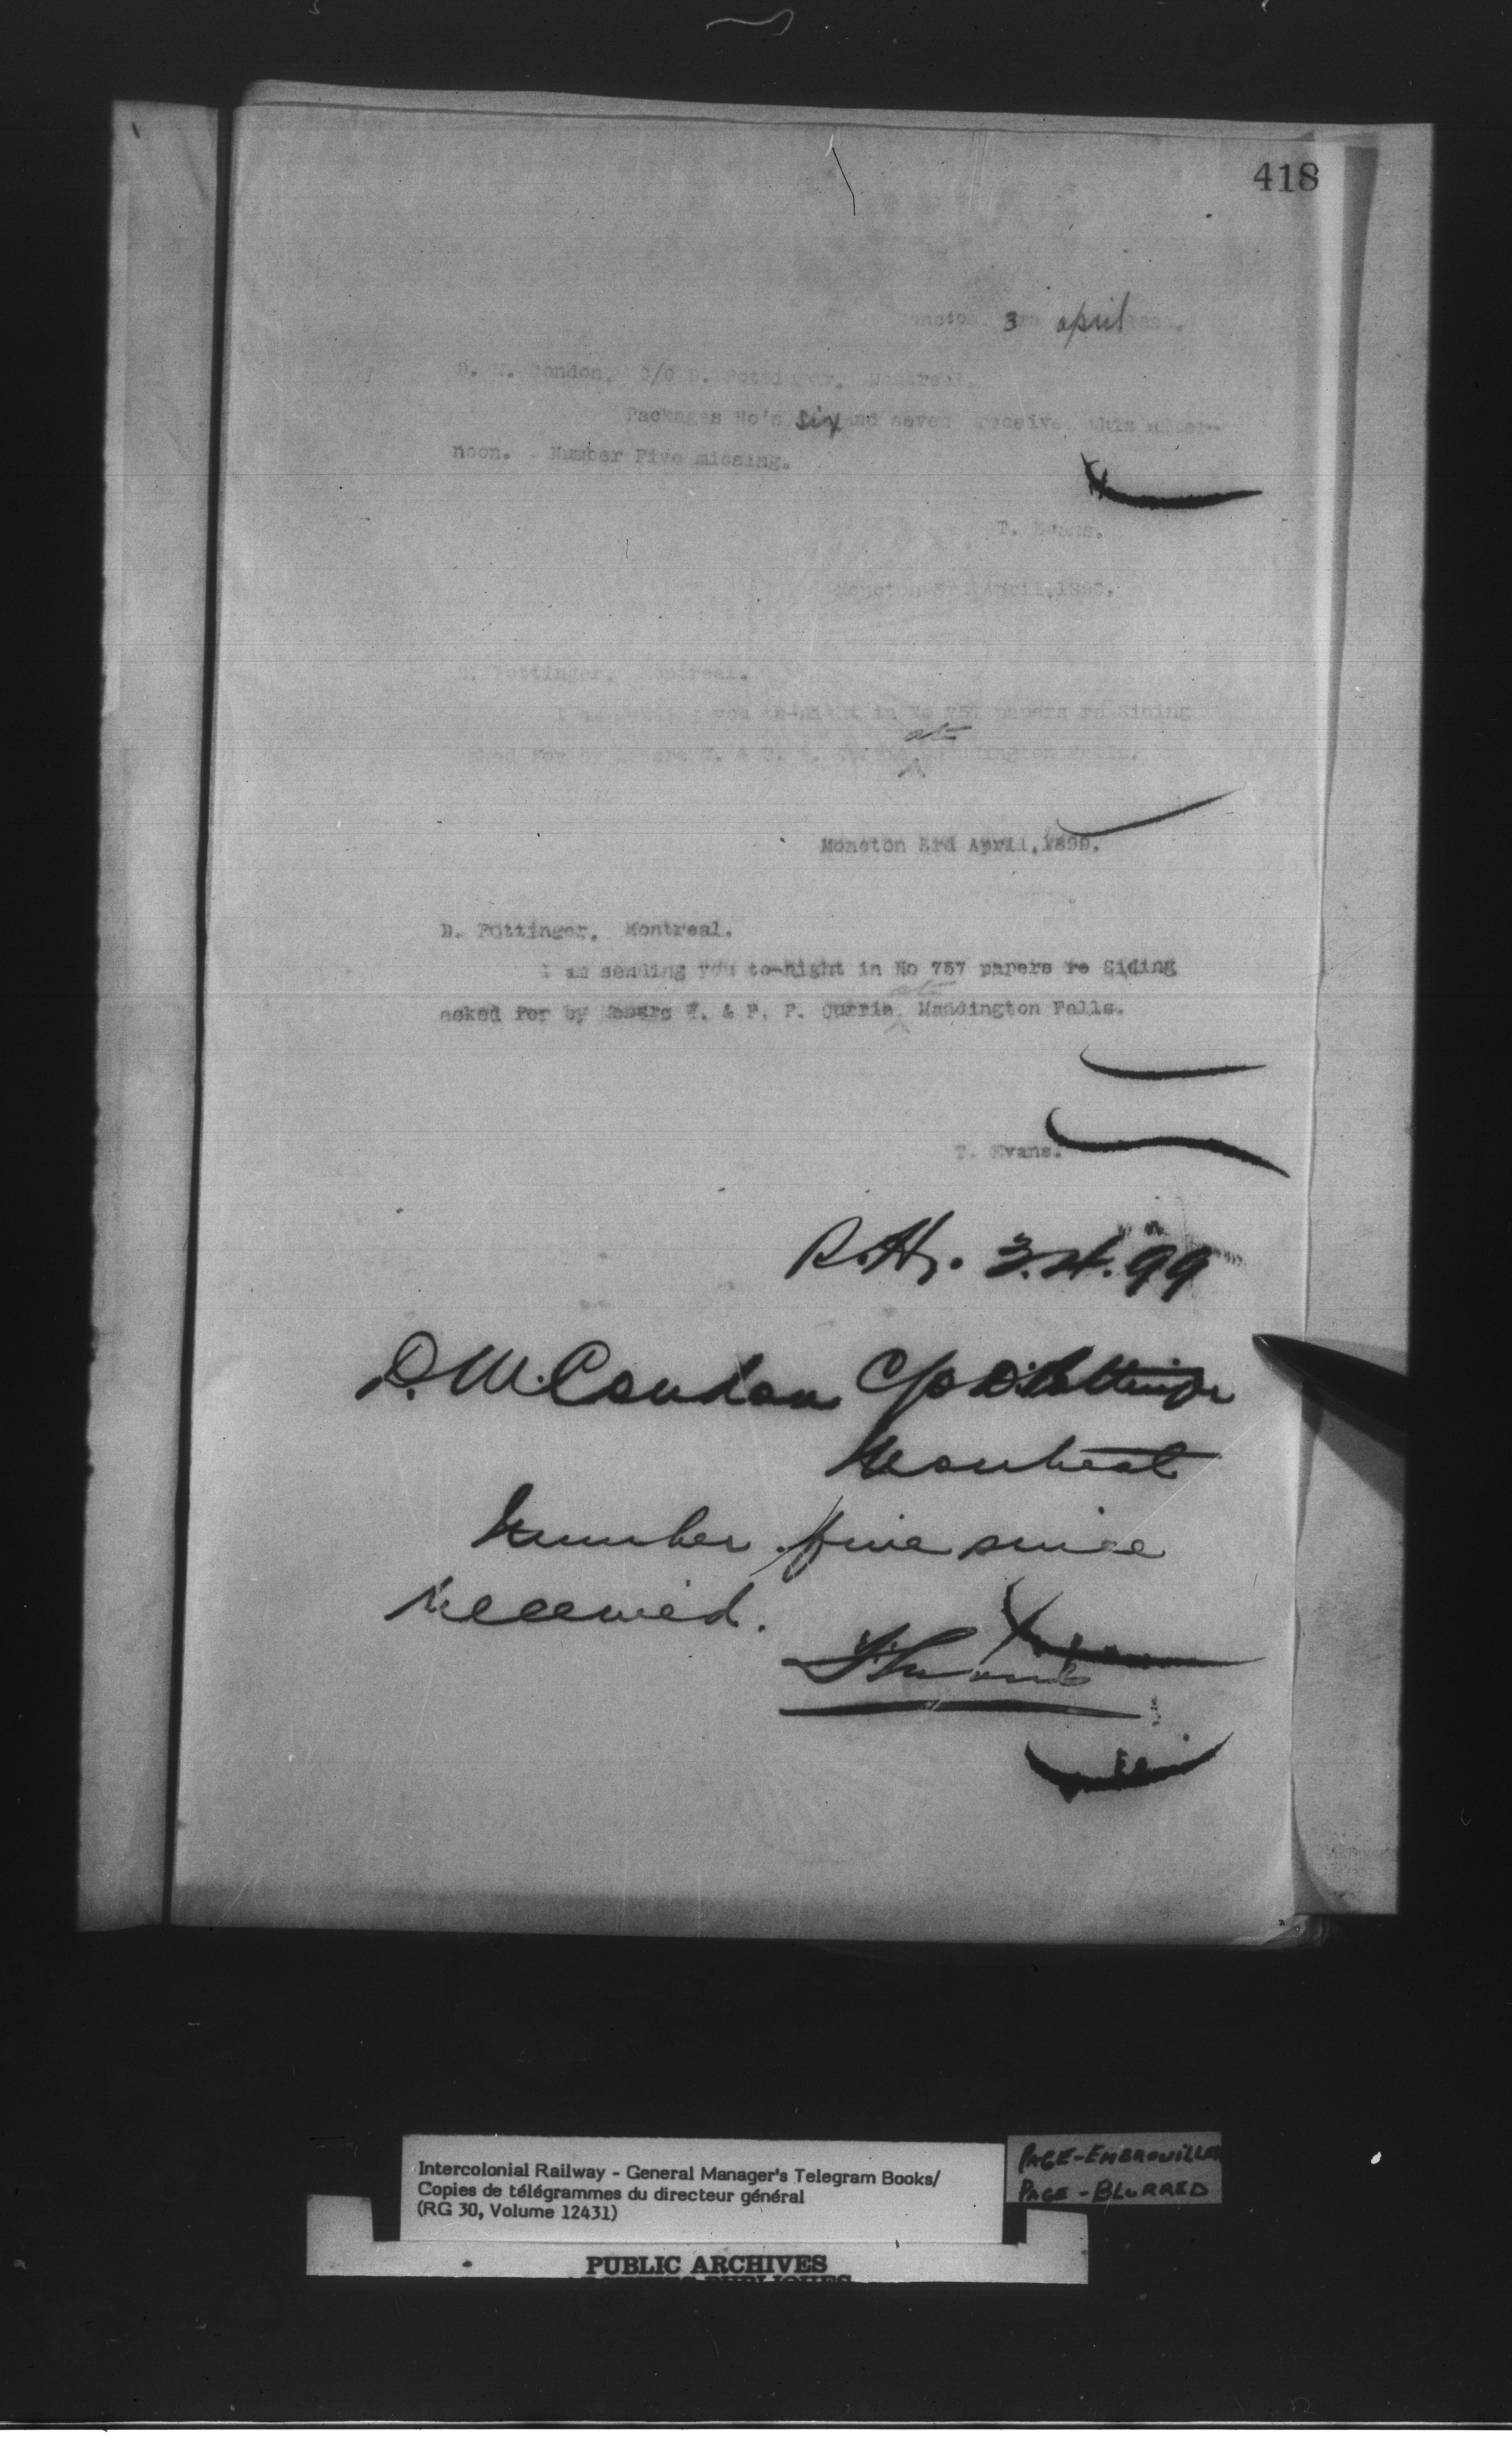 418
3 april
D. W. Condon, C/O D. Pottinger, Montreal.
Packages No's Six and seven received this after-
noon. Number Five missing.
T. Evans.
Moncton 3rd April, 1899.
D. Pottinger, Montreal.
I am sending you to-night in No 757 papers re Siding
at
asked for by W. & F. Maddington Falls.
Moncton 3rd April, 1899.
D. Pottinger, Montreal.
I am sending you to-night in No 757 papers re Siding
at
asked for by Messrs W. & F. P. Currie ^ Maddington Falls.
T. Evans.
3.4.99
D. W. Condon C/o D. Pottinger
Montreal
Number five since
received.
T. Evans
Intercolonial Railway - General Manager's Telegram Books/
Copies de télégrammes du directeur général
(RG 30, Volume 12431)
PAGE-EMBROUILLE
PAGE-BLURRED
PUBLIC ARCHIVES